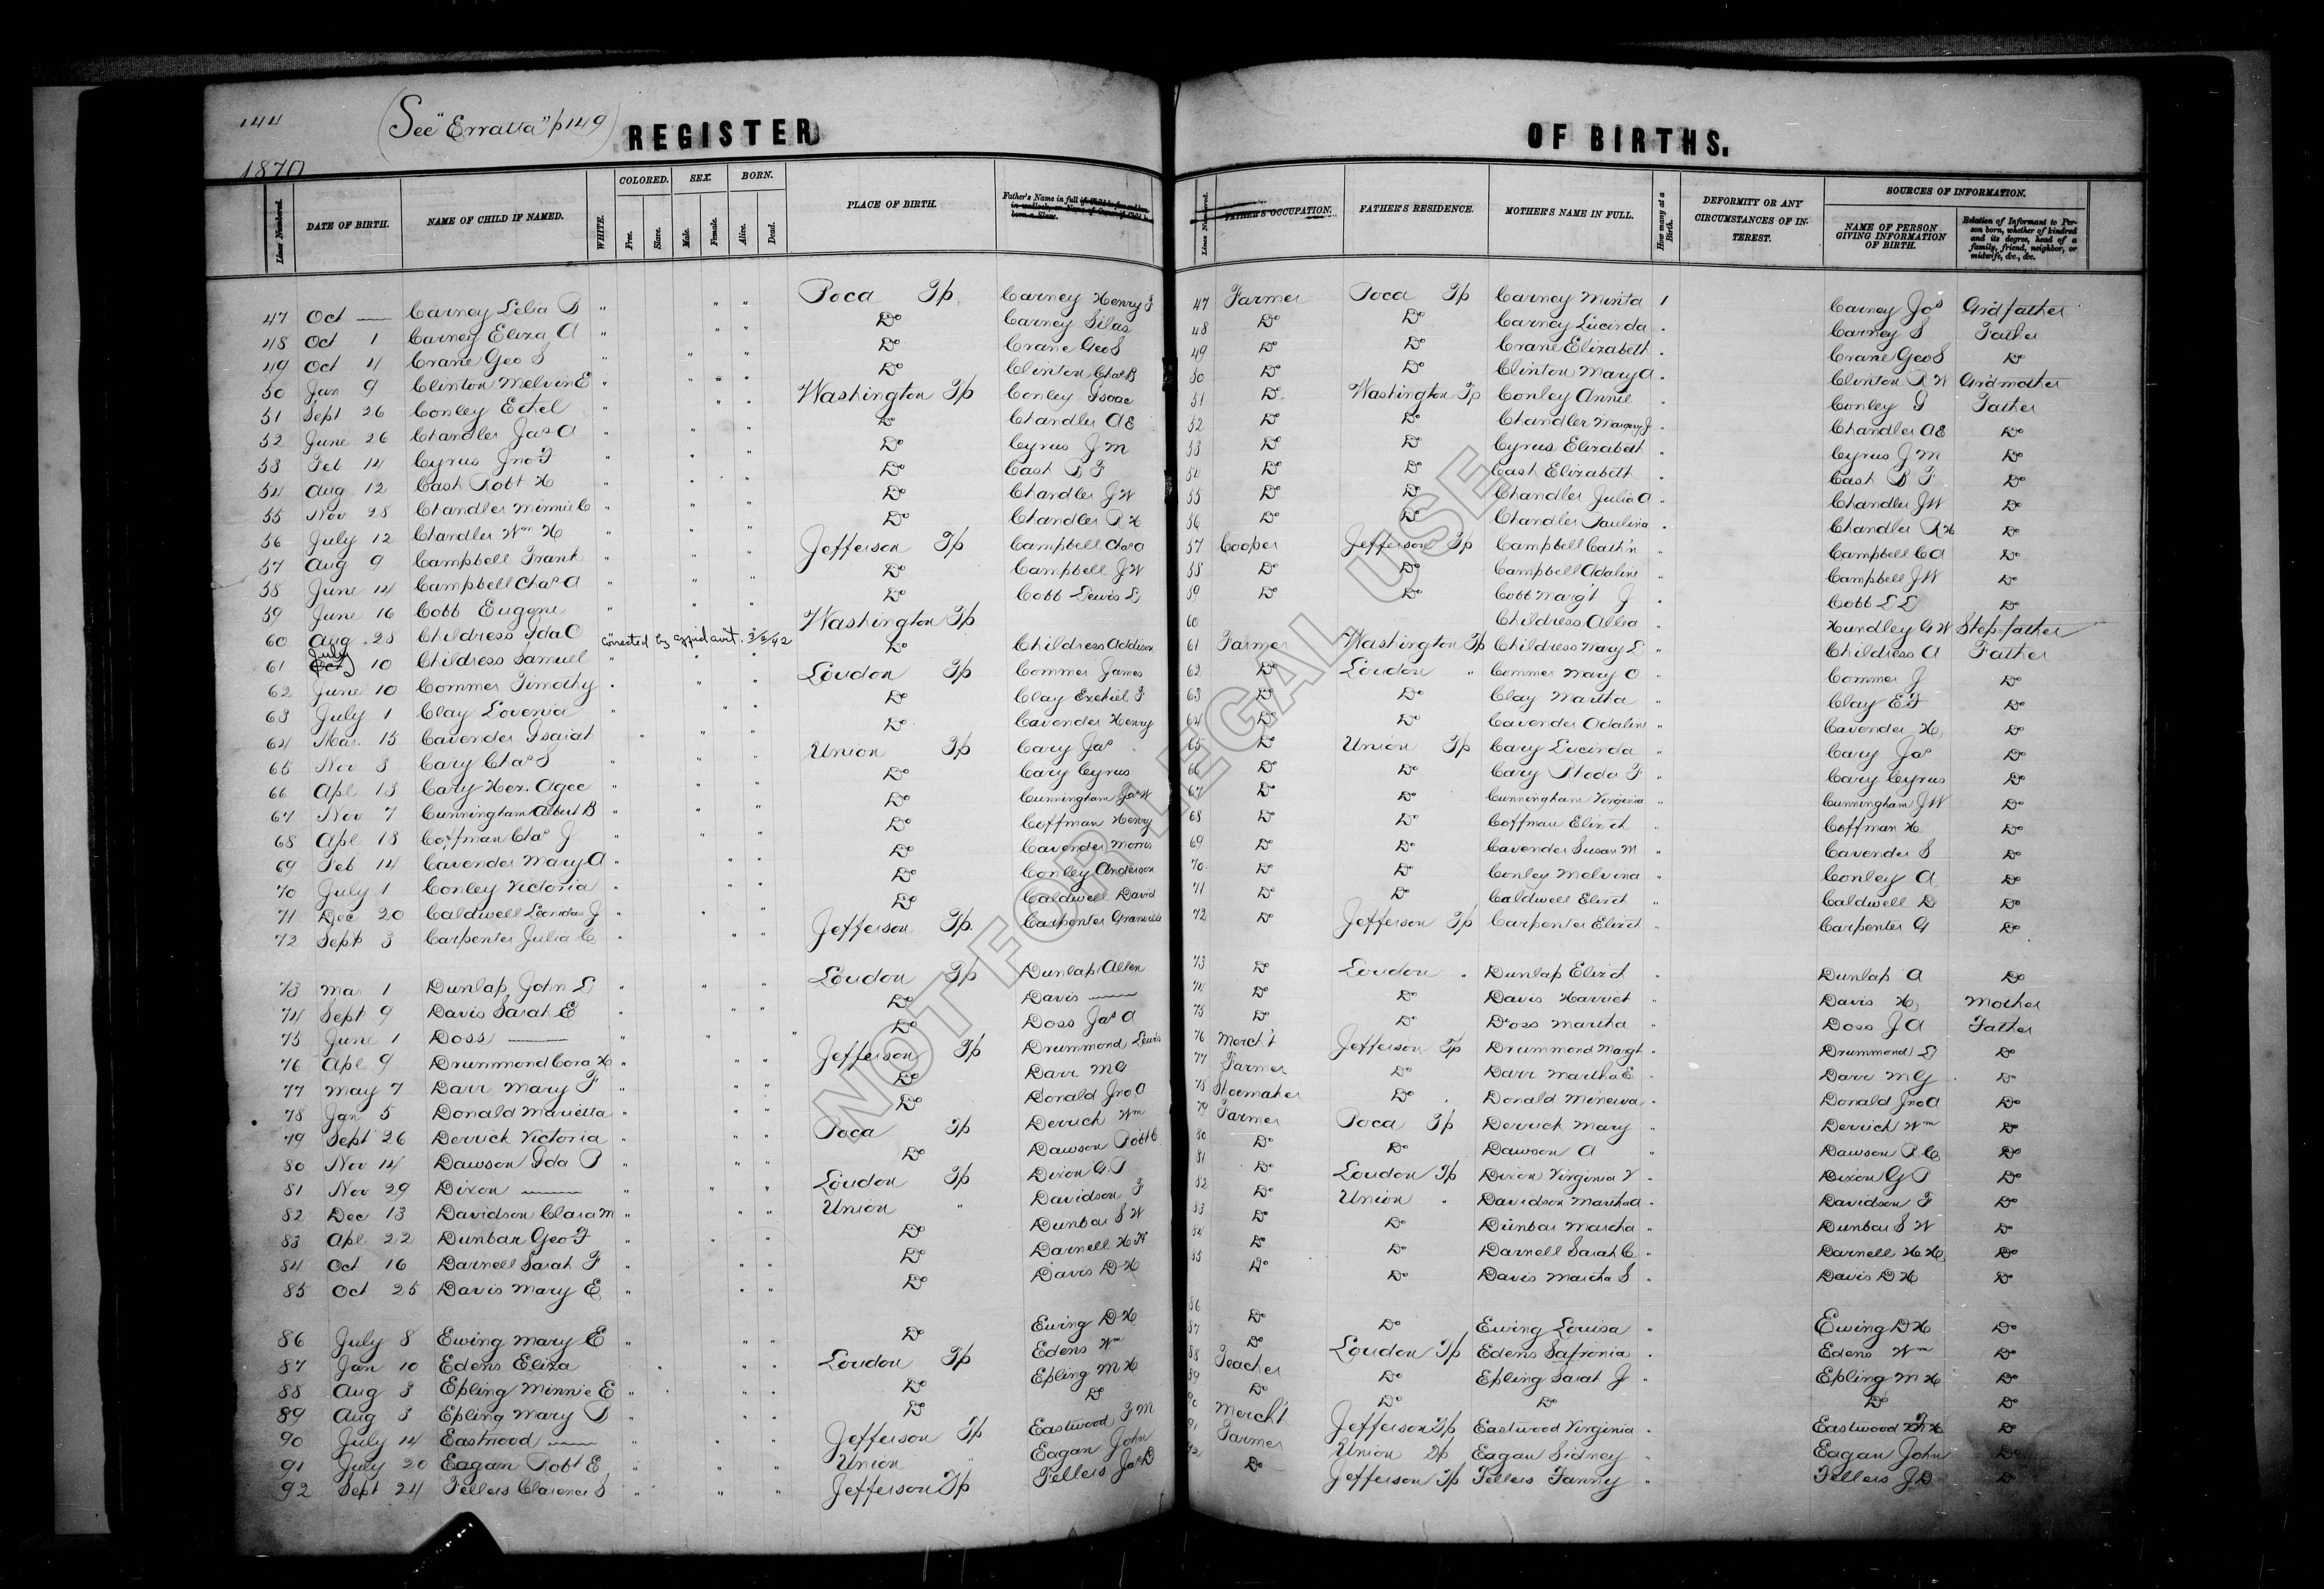 144
(See "Erratta" p 149)
REGISTER OF BIRTHS.
1870
Lines Numbered. DATE OF BIRTH. NAME OF CHILD IF NAMED. WHITE. COLORED. Free. Slave. SEX. Male. Female. BORN. Alive. Dead. PLACE OF BIRTH. Father's Name in full Lines Numbered. FATHER'S OCCUPATION. FATHER'S RESIDENCE. MOTHER'S NAME IN FULL. How many at a Birth. DEFORMITY OR ANY CIRCUMSTANCES OF INTEREST. SOURCES OF INFORMATION. NAME OF PERSON GIVING INFORMATION OF BIRTH. Relation of Informant to Person born, whether of kindred and its degree, head of a family, friend, neighbor, or midwife, &c., &c.
47 Oct — Carney Lelia B " " " Poca Tp. Carney Henry F 47 Farmer Poca Tp Carney Minta 1 Carney Jas Grdfather
48 Oct 1 Carney Eliza A " " " Do Carney Silas 48 Do Do Carney Lucinda " Carney S Father
49 Oct 4 Crane Geo S " " " Do Crane Geo S 49 Do Do Crane Elizabeth " Crane Geo S Do
50 Jan 9 Clinton Melvin E " " " Do Clinton Chas B 50 Do Do Clinton Mary A " Clinton R W Grdmother
51 Sept 26 Conley Ethel " " " Washington Tp Conley Isaac 51 Do Washington Tp Conley Annie " Conley I Father
52 June 26 Chandler Jas A " " " Do Chandler A E 52 Do Do Chandler Margary J " Chandler A E Do
53 Feb 14 Cyrus Jno F " " " Do Cyrus J M 53 Do Do Cyrus Elizabeth " Cyrus J M Do
54 Aug 12 Cash Robt H " " " Do Cash B F 54 Do Do Cash Elizabeth " Cash B F Do
55 Nov 28 Chandler Minnie C " " " Do Chandler J W 55 Do Do Chandler Julia A " Chandler J W Do
56 July 12 Chandler Wm H " " " Do Chandler R H 56 Do Do Chandler Paulina " Chandler R H Do
57 Aug 9 Campbell Frank " " " Jefferson Tp Campbell Chas A 57 Cooper Jefferson Tp Campbell Cath'n " Campbell C A Do
58 June 14 Campbell Chas A " " " Do Campbell J W 58 Do Do Campbell Adaline " Campbell J W Do
59 June 16 Cobb Eugene " " " Do Cobb Lewis L 59 Do Do Cobb Margt J " Cobb L L Do
60 Aug 28 Childress Ida O Washington Tp 60 Childress Allia " Hundley G W Step father
corrected by affidavit. 3/2/42
61 Oct July 10 Childress Samuel " " " Do Childress Addison 61 Farmer Washington Tp Childress Mary L " Childress A Father
62 June 10 Commer Timothy " " " Loudon Tp Commer James 62 Do Loudon " Commer Mary O " Commer J Do
63 July 1 Clay Lovenia " " " Do Clay Ezekiel F 63 Do Do Clay Martha " Clay E F Do
64 Mar. 15 Cavender Isaiah " " " Do Cavender Henry 64 Do Do Cavender Adaline " Cavender H Do
65 Nov 3 Cary Chas S " " " Union Tp Cary Jas 65 Do Union Tp Cary Lucinda " Cary Jas Do
66 Apl 13 Cary Hez. Agee " " " Do Cary Cyrus 66 Do Do Cary Rhoda F " Cary Cyrus Do
67 Nov 7 Cunningham Albert B " " " Do Cunningham Jas W 67 Do Do Cunningham Virginia " Cunningham J W Do
68 Apl 18 Coffman Chas J " " " Do Coffman Henry 68 Do Do Coffman Elizth " Coffman H Do
69 Feb 14 Cavender Mary A " " " Do Cavender Morris 69 Do Do Cavender Susan M " Cavender S Do
70 July 1 Conley Victoria " " " Do Conley Anderson 70 Do Do Conley Melvina " Conley A Do
71 Dec 20 Caldwell Leonidas J " " " Do Caldwell David 71 Do Do Caldwell Elizth " Caldwell D Do
72 Sept 3 Carpenter Julia C " " " Jefferson Tp. Carpenter Granville 72 Do Jefferson Tp Carpenter Elizth " Carpenter G Do
73 Mar 1 Dunlap John L " " " Loudon Tp Dunlap Allen 73 Do Loudon " Dunlap Elizth " Dunlap A Do
74 Sept 9 Davis Sarah E " " " Do Davis — 74 Do Do Davis Harriet " Davis H Mother
75 June 1 Doss — " " " Do Doss Jas A 75 Do Do Doss Martha " Doss J A Father
76 Apl 9 Drummond Cora H " " " Jefferson Tp Drummond Lewis 76 Merch't Jefferson Tp Drummond Margt " Drummond L Do
77 May 7 Darr Mary F " " " Do Darr M G 77 Farmer Do Darr Martha E " Darr M G Do
78 Jan 5 Donald Marietta " " " Do Donald Jno A 78 Shoemaker Do Donald Minerva " Donald Jno A Do
79 Sept 26 Derrick Victoria " " " Poca Tp Derrick Wm 79 Farmer Poca Tp Derrick Mary " Derrick Wm Do
80 Nov 14 Dawson Ida B " " " Do Dawson Robt C 80 Do Do Dawson A " Dawson R C Do
81 Nov 29 Dixon — " " " Loudon Tp Dixon G. P 81 Do Loudon Tp Dixon Virginia V " Dixon G P Do
82 Dec 13 Davidson Clara M " " " Union " Davidson F 82 Do Union " Davidson Martha A " Davidson F Do
83 Apl 22 Dunbar Geo F " " " Do Dunbar S W 83 Do Do Dunbar Martha " Dunbar S W Do
84 Oct 16 Darnell Sarah F " " " Do Darnell H H 84 Do Do Darnell Sarah C " Darnell H H Do
85 Oct 25 Davis Mary E " " " Do Davis D H 85 Do Do Davis Martha S " Davis D H Do
86 July 8 Ewing Mary E " " " Do Ewing D H 86 Do Do Ewing Louisa " Ewing D H Do
87 Jan 10 Edens Eliza " " " Loudon Tp Edens Wm 87 Do Loudon Tp Edens Safronia " Edens Wm Do
88 Aug 3 Epling Minnie E " " " Do Epling M H 88 Teacher Do Epling Sarah J " Epling M H Do
89 Aug 3 Epling Mary B " " " Do Do 89 Do Do Do Do Do
90 July 14 Eastwood — " " " Jefferson Tp Eastwood F M 90 Merch't Jefferson Tp Eastwood Virginia " Eastwood Do
91 July 20 Eagan Robt E " " " Union " Eagan John 91 Farmer Union Tp Eagan Sidney " Eagan John Do
92 Sept 24 Fellers Clarence S " " " Jefferson Tp Fellers Jas D 92 Do Jefferson Tp Fellers Fanny " Fellers J D Do
NOT FOR LEGAL USE